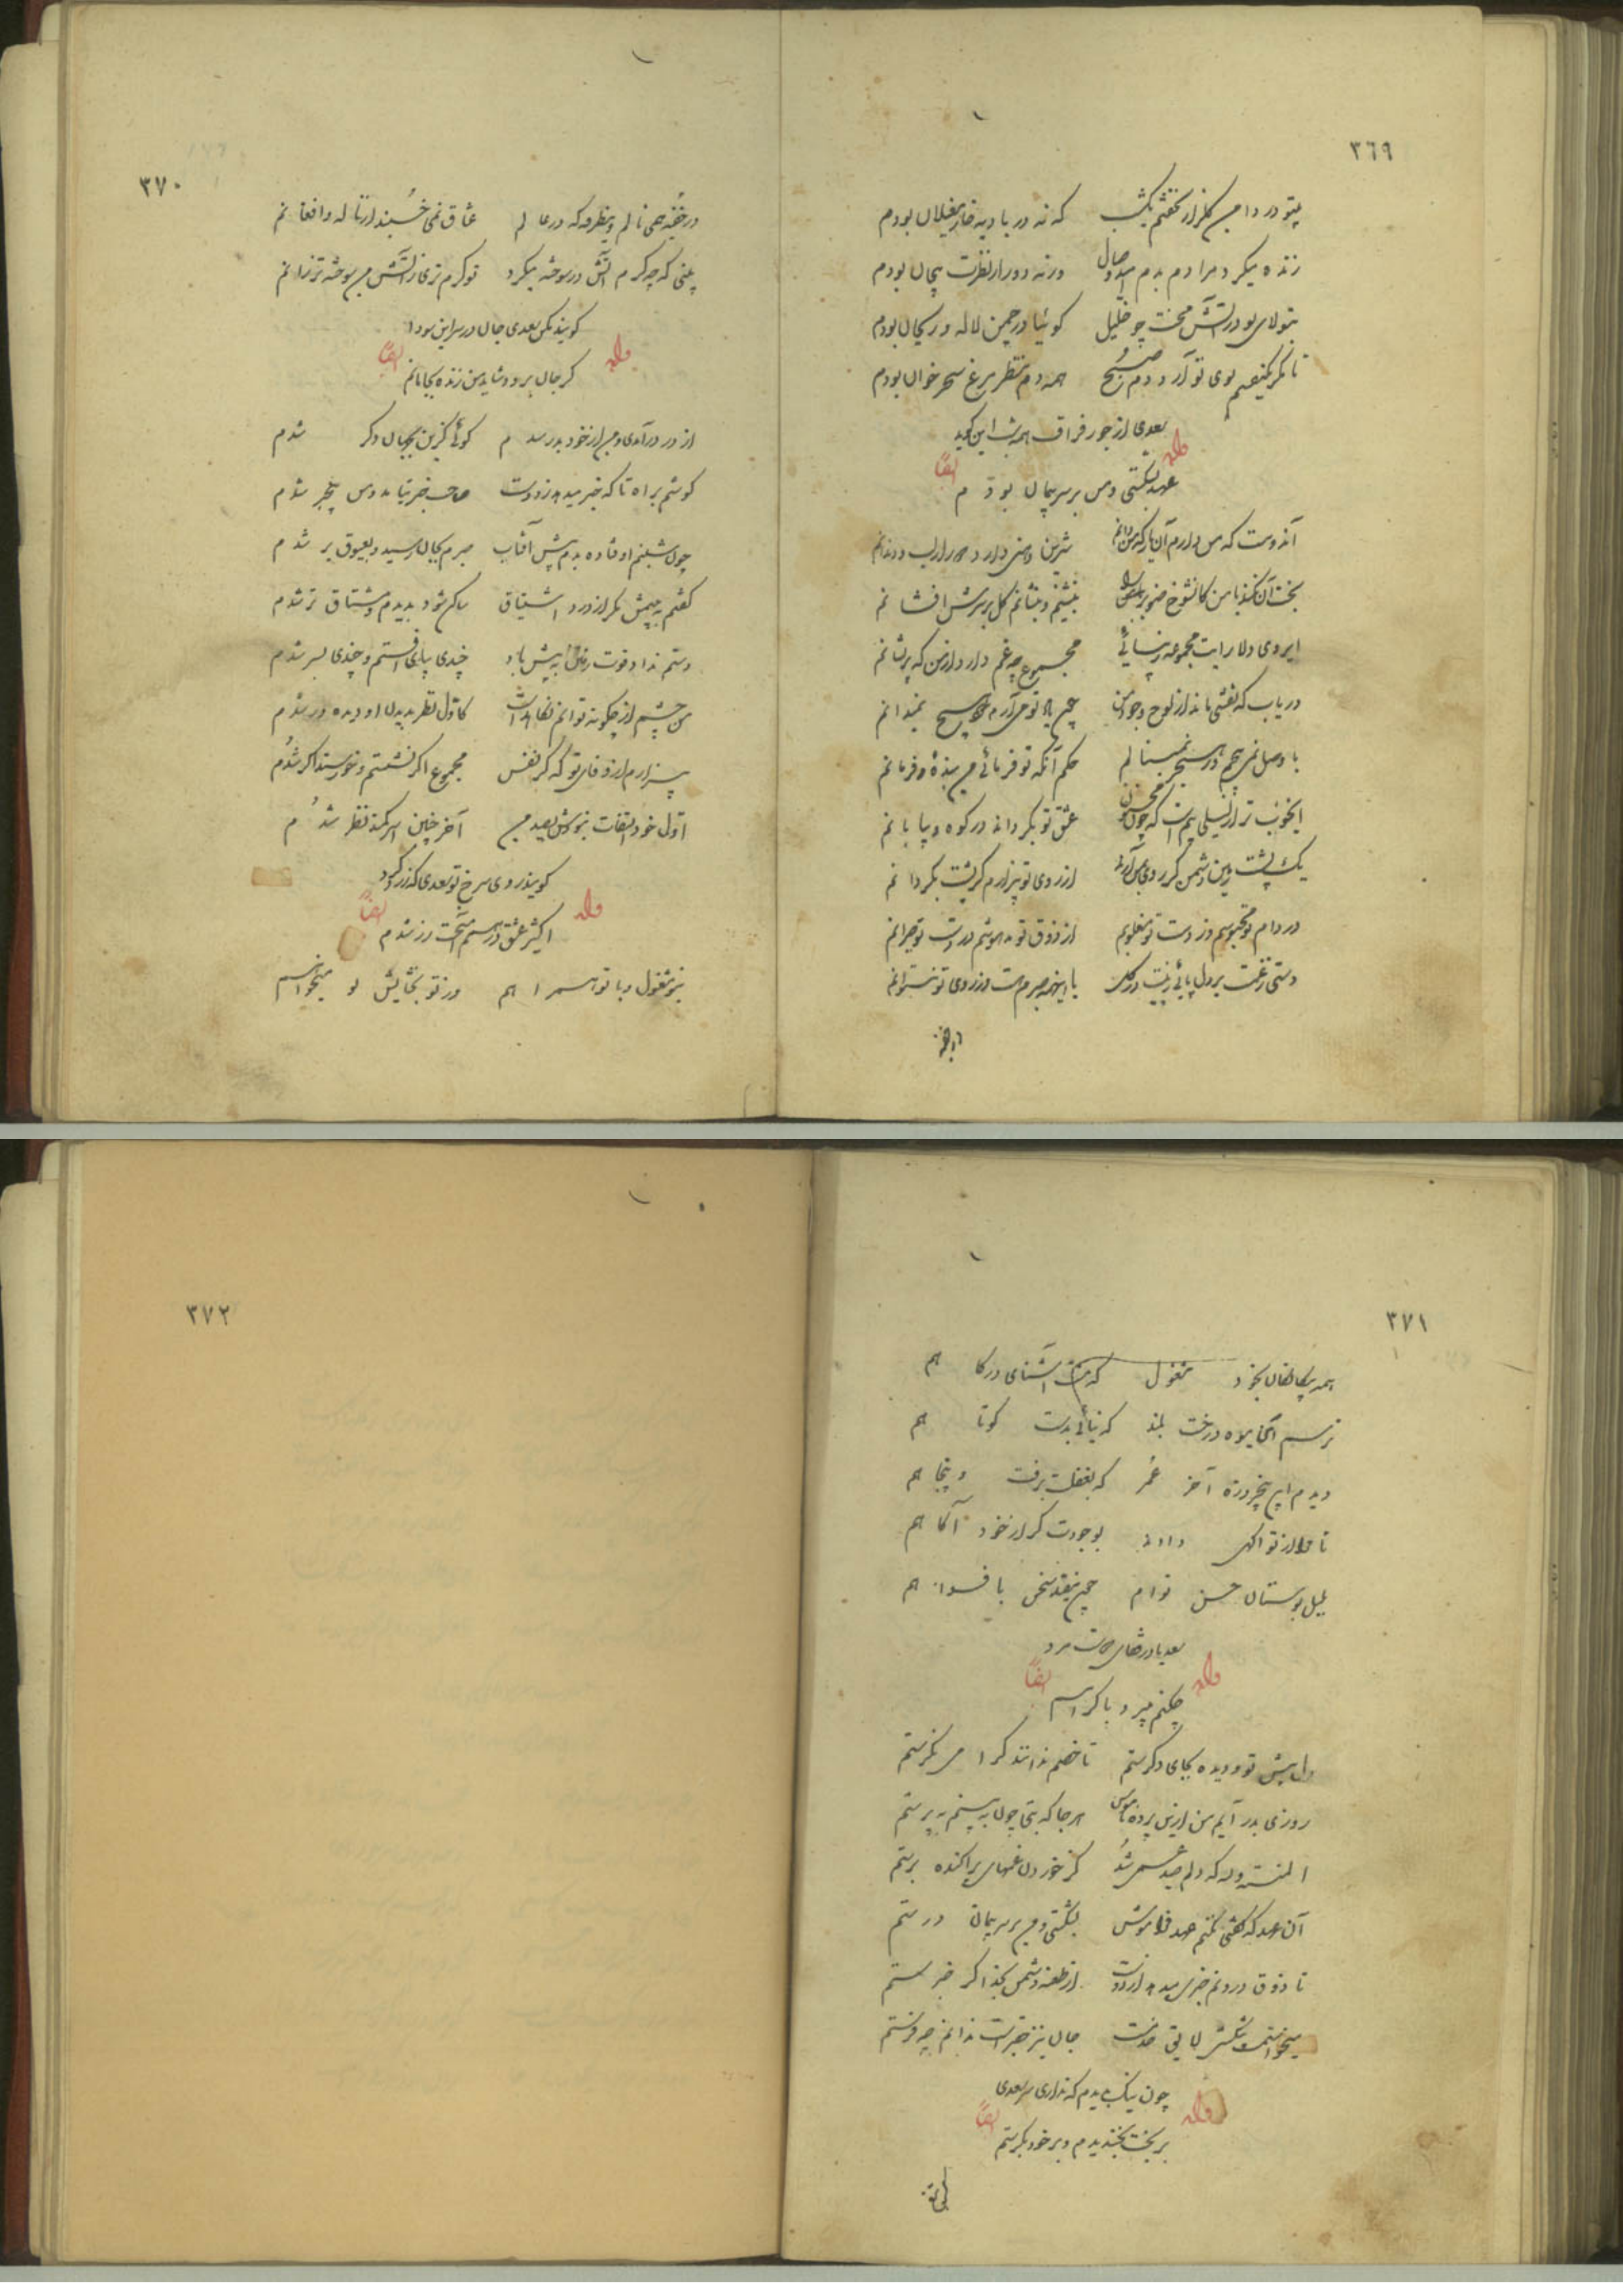 ٣٦٩
بیتو در دامن گلزار نخفتم یکشب که نه در بادیه خار مغیلان بودم
زنده میکرد مرا دم بدم امید وصال ورنه دور از نظرت بیجان بودم
بتولای تو در آتش محنت چو خلیل گوئیا در چمن لاله و ریحان بودم
تا مگر یکنفسم بوی تو آرد دم صبح همه دم منتظر مرغ سحر خوان بودم
سعدی از جور فراقت همه شب این گوید
وله ایضاً
عهد بشکستی و من بر سر پیمان بودم
آندوست که من دارم آن یار که من دانم شیرین دهنی دارد دور از لب و دندانم
بخت آن نکند با من کان شوخ صنوبر بنشینم و بنشانم گل بر سرش افشانم
ایروی دلارایت مجموعه زیبائی مجموع چه غم دارد از من که پریشانم
دریاب که نقشی ماند از لوح وجود من چون یاد تو می آرم خود هیچ نمیدانم
با وصل نمی پیچم وز هجر نمینالم حکم آنکه تو فرمائی من بنده فرمانم
ایخوبتر از لیلی بیم است که چون مجنون عشق تو بگرداند در کوه و بیابانم
یک پشت زمین دشمن گر روی بمن آرند از روی تو بیزارم گر پشت بگردانم
در دام تو محبوسم وز دست تو مغلوبم از ذوق تو مدهوشم در وصف تو حیرانم
دستی ز غمت بر دل پائی ز پیت در گل با اینهمه صبرم هست وز روی تو نتوانم
در خفیه
٣٧٠
در خفیه همی نالم وینطرفه که در عالم عشاق نمی خسبند از ناله و افغانم
بینی که چه گرم آتش در سوخته میگیرد تو گرم تری ز آتش من سوخته تر ز آنم
گویند مکن سعدی جان در سر این سودا
وله ایضاً
گر جان برود شاید من زنده بجانانم
از در درآمدی و من از خود بدر شدم گوئی کزین جهان بجهان دگر شدم
گوشم براه تا که خبر میدهد ز دوست صاحب خبر بیامد و من بیخبر شدم
چون شبنم اوفتاده بدم پیش آفتاب مهرم بجان رسید و بعیوق بر شدم
گفتم به بینمش مگرم درد اشتیاق ساکن شود بدیدم و مشتاق تر شدم
دستم نداد قوت رفتن به پیش یار چندی بپای رفتم و چندی بسر شدم
من چشم ازو چگونه توانم نگاهداشت کاول نظر بدیدن او دیده ور شدم
بیزارم از وفای تو گر یک نفس مجموع اگر نشستم و خرسند اگر شدم
او خود التفات نبودش بصید من آخر چنین اسیر کمند نظر شدم
گویند روی سرخ تو سعدی که زرد کرد
وله ایضاً
اکسیر عشق در مسم آمیخت زر شدم
بتو مشغول و با تو همراهم وز تو بخشایش تو میخواهم
٣٧١
همه بیگانگان بخود مشغول که منت آشنای درگاهم
ترسم ای میوه درخت بلند که نیائی بدست کوتاهم
دیدم این پنجروزه آخر عمر که بغفلت برفت پنجاهم
تا مرا از تو آگهی دادند بوجودت گر از خود آگاهم
بلبل بوستان حسن توام چون نیفتد سخن بافواهم
سعدیا در قفای دوست مرو
وله ایضاً
چکنم میبرد باکراهم
دل پیش تو و دیده بجای دگرستم تا خصم نداند که ترا می نگرستم
روزی بدر آیم من ازین پرده ناموس هر جا که بتی چون تو به بینم بپرستم
المنة لله که دلم صید غمی شد کز خوردن غمهای پراکنده برستم
آن عهد که گفتی نکنم عهد فراموش بشکستی و من بر سر پیمان درستم
تا ذوق درونم خبری میدهد از دوست از طعنه دشمن بخدا گر خبرستم
میخواستمت پیشکشی لایق خدمت جان نیز حقیر است ندانم چه فرستم
چون نیک بدیدم که نداری سر سعدی
وله ایضاً
بر بخت بخندیدم و بر خود بگرستم
٣٧٢